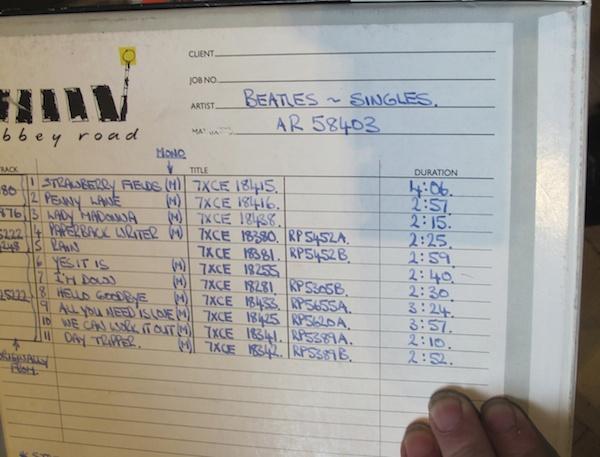 CLIENT
JOB NO.
ARTIST BEATLES ~ SINGLES.
AR 58403
bbey road
MONO
TRACK TITLE DURATION
1 STRAWBERRY FIELDS (M) 7XCE 18415. 4:06.
2 PENNY LANE (M) 7XCE 18416. 2:57.
3 LADY MADONNA (M) 7XCE 18438. 2:15.
4 PAPERBACK WRITER (M) 7XCE 18380. RP5452A. 2:25.
5 RAIN 7XCE 18381. RP5452B. 2:59.
6 YES IT IS (M) 7XCE 18255 2:40.
7 I'M DOWN (M) 7XCE 18281. RP5305B. 2:30.
8 HELLO GOODBYE (M) 7XCE 18433. RP5655A. 3:24.
9 ALL YOU NEED IS LOVE (M) 7XCE 18425 RP5620A. 3:57.
10 WE CAN WORK IT OUT (M) 7XCE 18341. RP5389A. 2:10.
11 DAY TRIPPER. (M) 7XCE 18342. RP5389B. 2:52.
25222
ORIGINALLY
FROM